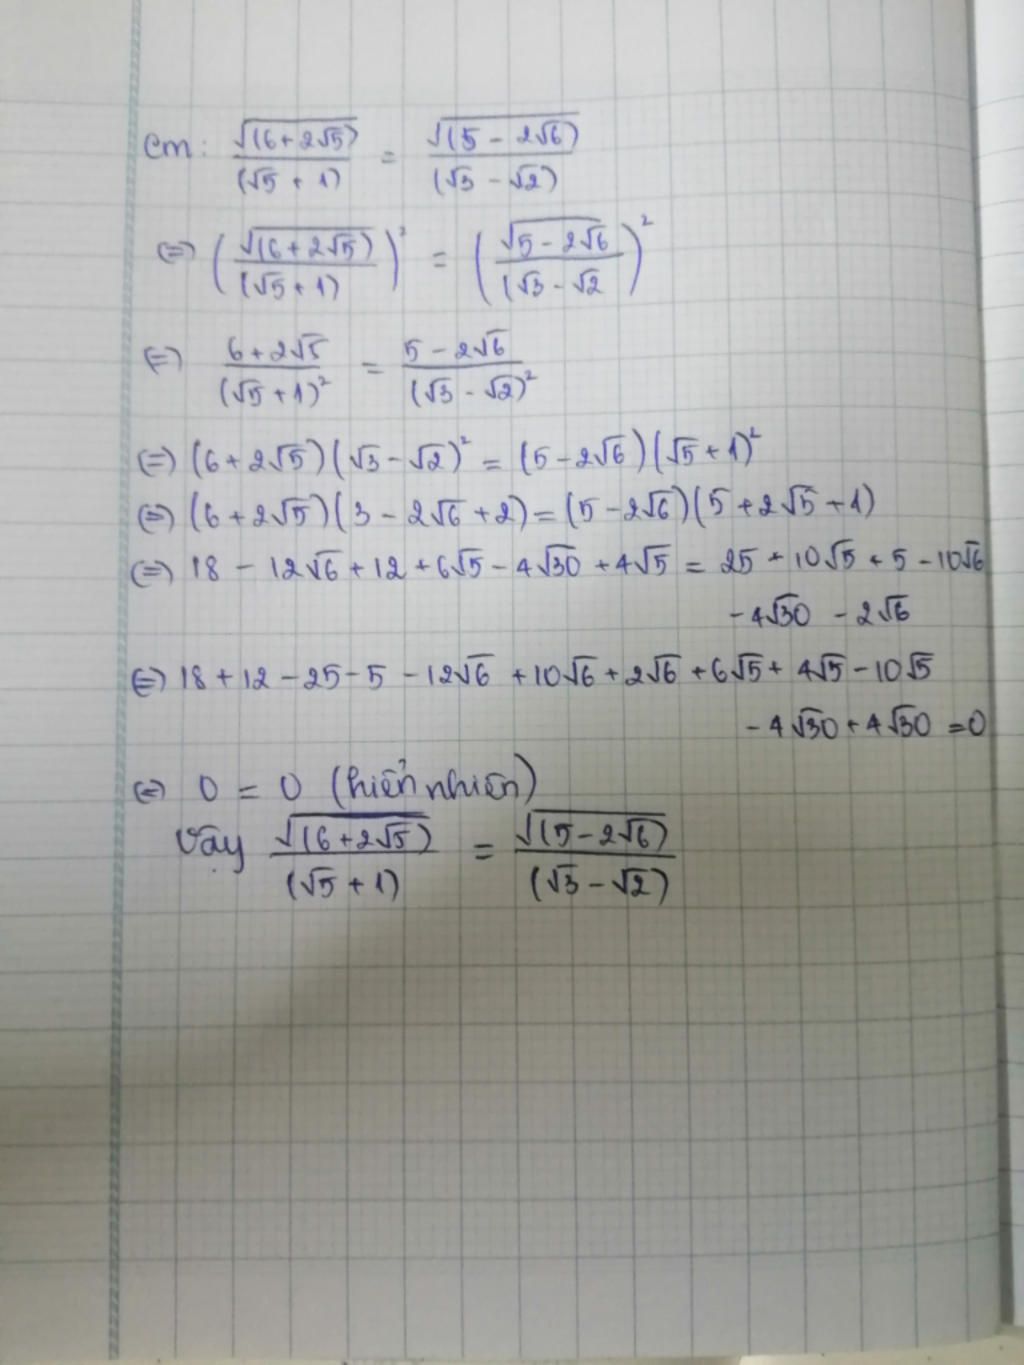 Cm: √(6+2√5)/(√5+1) = √(5-2√6)/(√3-√2)
(=) (√(6+2√5)/(√5+1))² = (√5-2√6/(√3-√2)²
(=) 6+2√5/(√5+1)² = 5-2√6/(√3-√2)²
(=) (6+2√5)(√3-√2)² = (5-2√6)(√5+1)²
(=) (6+2√5)(3-2√6+2) = (5-2√6)(5+2√5+1)
(=) 18 - 12√6 + 12 + 6√5 - 4√30 + 4√5 = 25 + 10√5 + 5 - 10√6
- 4√30 - 2√6
(=) 18 + 12 - 25 - 5 - 12√6 + 10√6 + 2√6 + 6√5 + 4√5 - 10√5
- 4√30 + 4√30 = 0
(=) 0 = 0 (hiển nhiên)
Vậy √(6+2√5)/(√5+1) = √(5-2√6)/(√3-√2)